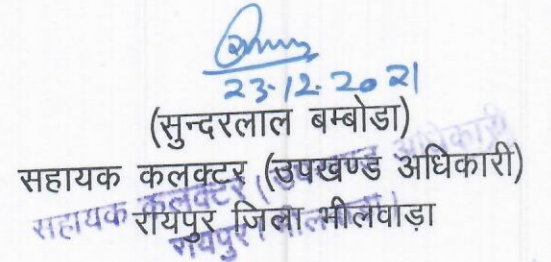 23-12-2021
(सुन्दरलाल बम्बोडा)
सहायक कलक्टर (उपखण्ड अधिकारी)
रायपुर जिला भीलवाड़ा
सहायक कलक्टर ( उपखण्ड अधिकारी
रायपुर